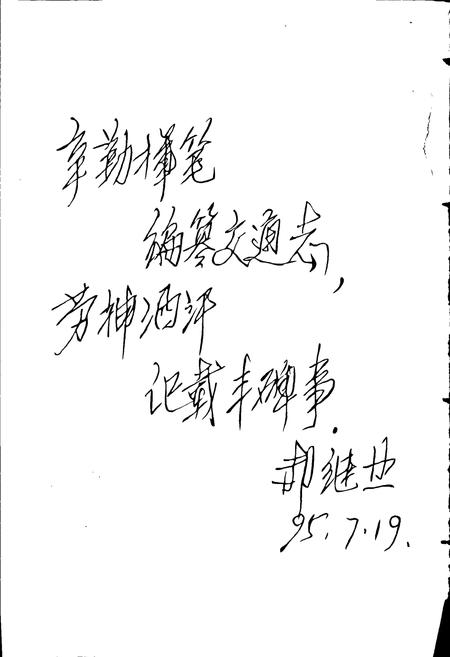 辛勤挥笔
编纂交通志,
劳神洒汗
记载丰碑事.
95.7.19.